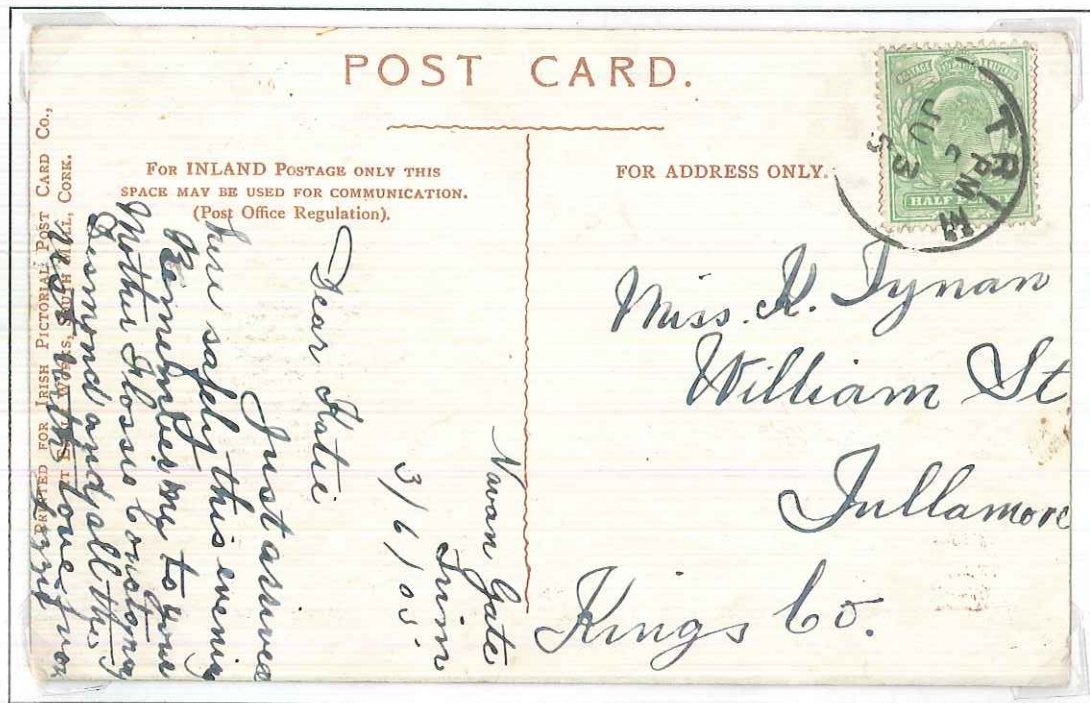 POST CARD.
FOR INLAND POSTAGE ONLY THIS
SPACE MAY BE USED FOR COMMUNICATION.
(Post Office Regulation).
FOR ADDRESS ONLY.
POSTAGE REVENUE
HALF PENNY
TRIM
PM
JU 3
05
PRINTED FOR IRISH PICTORIAL POST CARD Co.,
AT WORKS, SOUTH MALL, CORK.
Navan Gate
Trim
3/6/05.
Dear Katie
Just arrived
here safely this evening
Remember me to your
Mother Flossie
and all the
with love from
Lizzie
Miss. K. Tynan
William St
Tullamore
Kings Co.